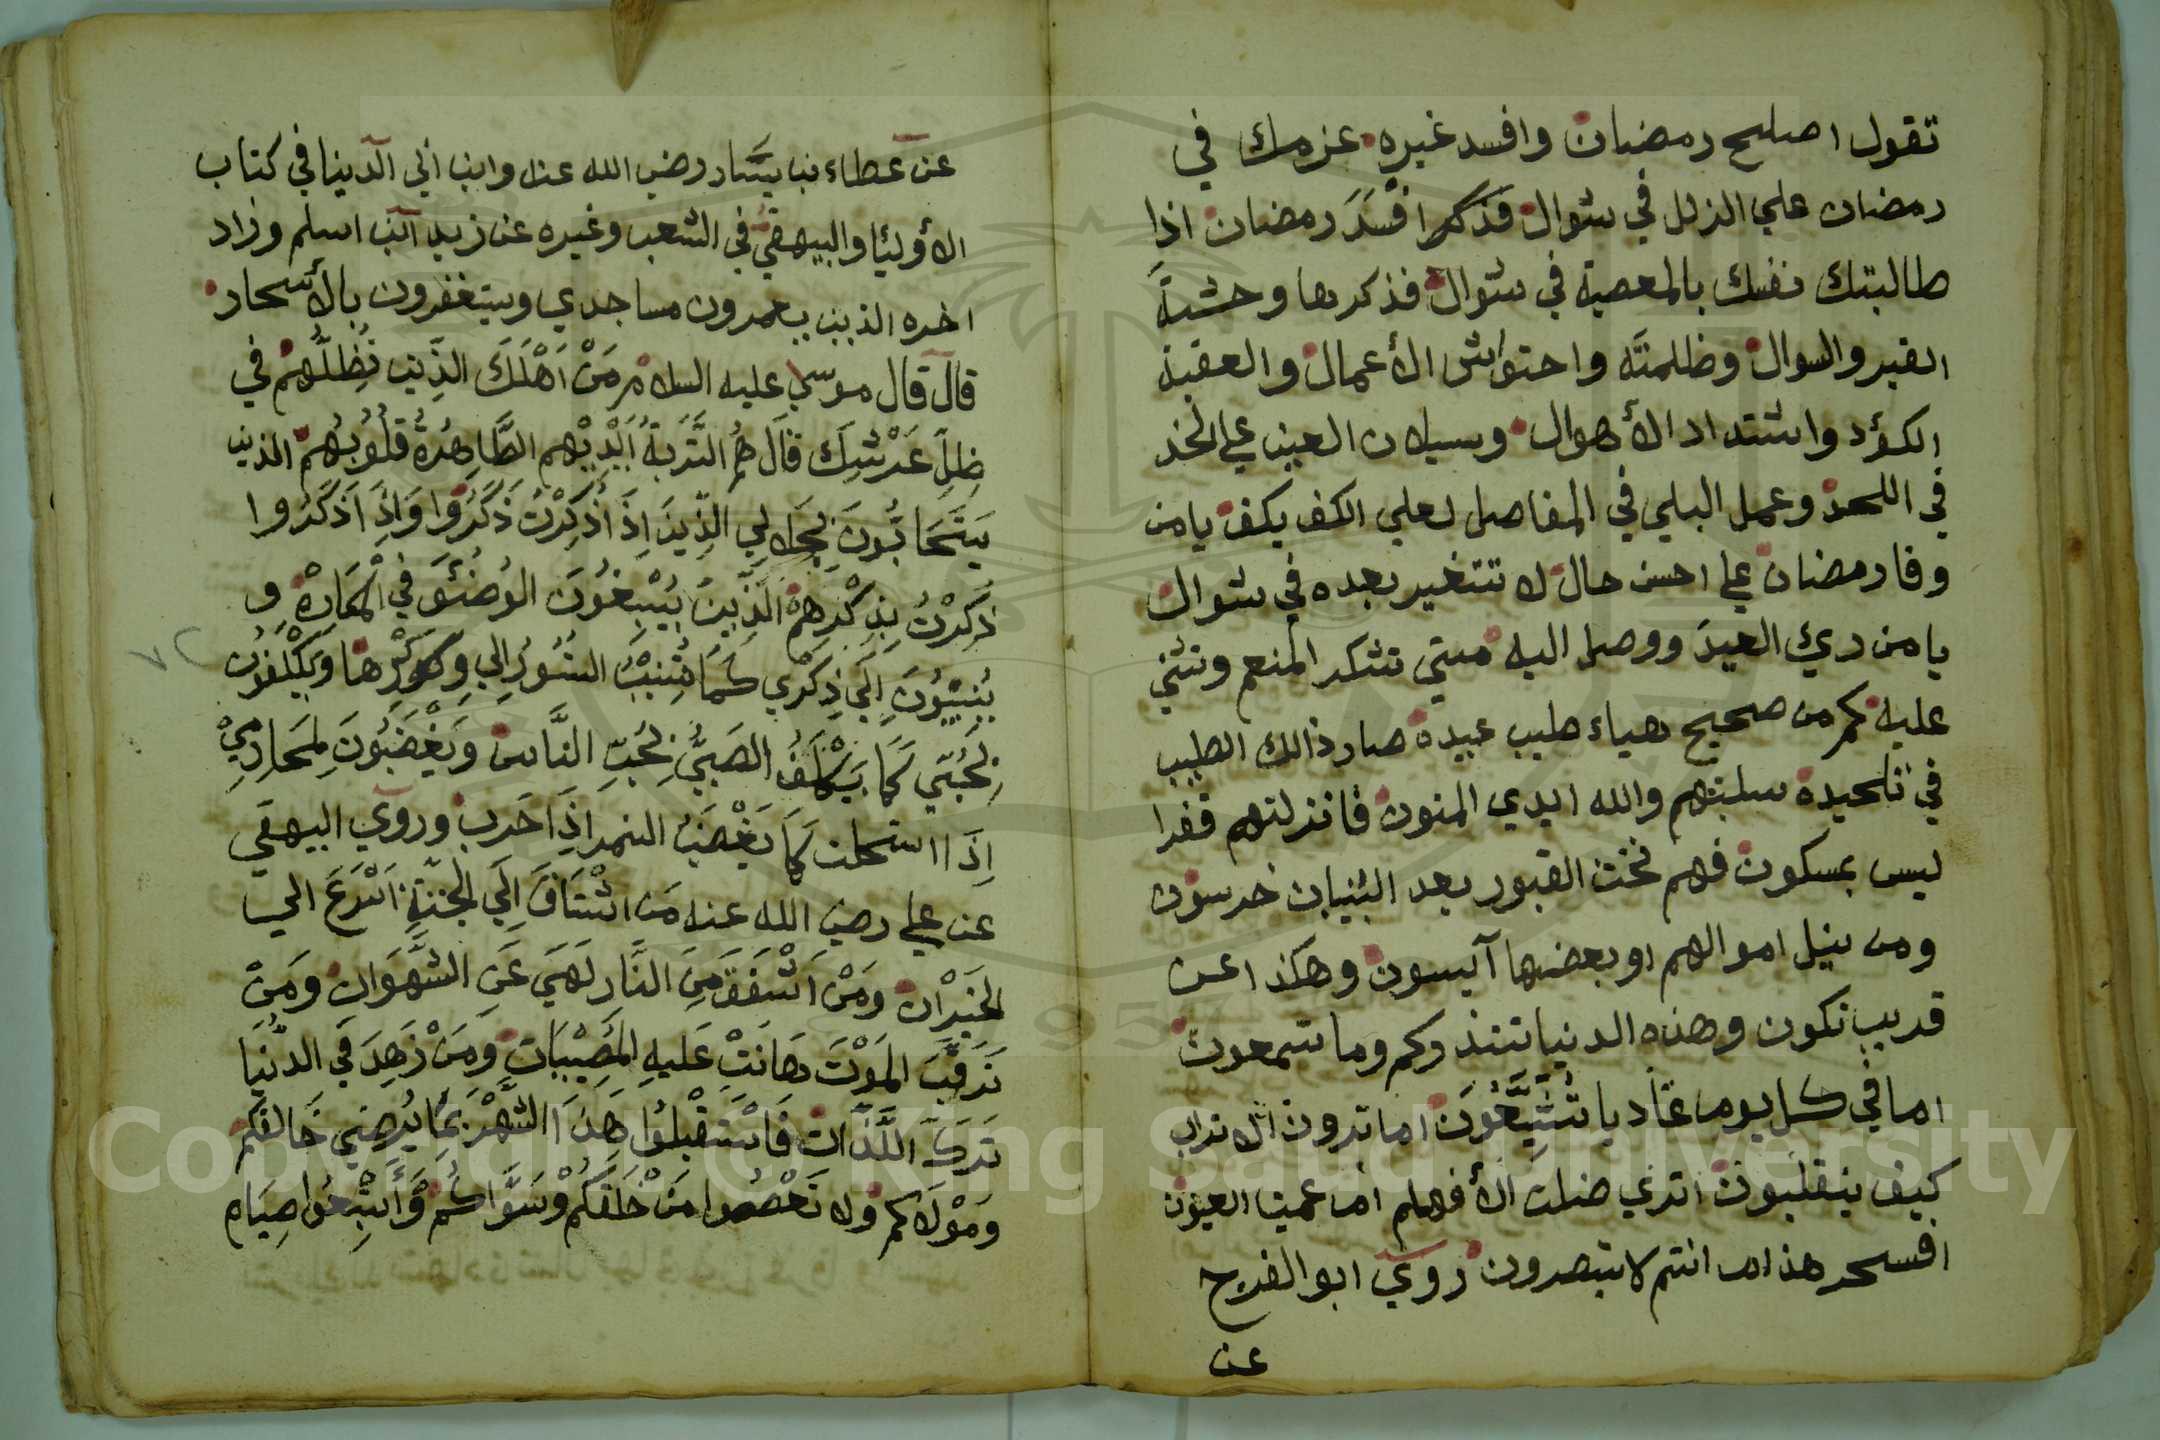 تقول اصلح رمضان وافسد غيره عزمك في
رمضان علي الزلل في شوال فذكر افْسَدَ رمضان اذا
طالبتك نفسك بالمعصية في شوال فذكرها وحشة
القبر والسوال وظلمته واحتواش الأعمال والعقبة
الكؤد واشتداد الأهوال وسيلان العين علي الخد
في اللحد وعمل البلي في المفاصل لعلي الكف يكف يا من
وفا رمضان علي احسن حال لا تتغير بعده في شوال
يا من ري العيد ووصل اليه متي تشكر المنعم وتثني
عليه كم من صحيح هياء طيب عيده صار ذالك الطيب
في تلحيده سلبتهم والله ايدي المنون فانزلتهم قفرا
ليس بمسكون فهم تحت القبور بعد البنيان خرسون
ومن نيل اموالهم او بعضها آيسون وهكذا عن
قريب تكون وهذه الدنيا تنذركم وما تسمعون
اما في كل يوم غَاديا تُشَيِّعُونَ اما ترون الاتراب
كيف ينقلبون اتري ضلت الأفهام ام عميت العيون
افسحر هذا ام انتم لا تبصرون روي ابو الفرج
عن
عن عطاء بن يسَار رضي الله عنه وابن ابي الدنيا في كتاب
الأوليا والبيهقي في الشعب وغيره عن زيد ابن اسلم وزاد
اخره الذين يعمرون مساجدي ويستغفرون بالأسحار
قال قال موسي عليه السلام مَنْ اَهْلَكَ الذِين تُظِلُّهُم في
ظِلِّ عَرْشِكَ قَالَ هُمُ التَّرِبَةُ اَيْدِيْهم الطَّاهِرَةُ قلُوْبُهُم الذين
يَتَحَابُّونَ بِجَلالِي الذِينَ اِذَ اُذكِرْتُ ذَكَرُوا وَاِذَ اذَكَرُوا
ذكَرْتُ بِذِكْرِهِمْ الَّذِينَ يُسْبِغُونَ الوُضُوَ في الْمَكَارِهْ و
يُنِيْبُوْنَ اِلَي ذِكْرِي كَمَا تُنِيْبُ النُسُورُ اِلي وكوْرِهَا وَيَكْلَفُوْن
بِحُبِّي كَمَا يَكْلَفُ الصَبيُّ بِحُبِّ النَّاس وَيَغْضَبُونَ لِمَحَارِمِيْ
اِذَا استحلت كَمَا يَغْضَبُ النمر اِذَا حَرب وروي البيهقي
عن علي رضي الله عنه مَن اشْتَاقَ اِلَي الجَنّةِ اَسْرَعَ الي
الخَيْرَاتِ وَمَنْ اَشْفَقَ مِنَ النَّار لَهيَ عَنِ الشَّهَوَاتِ وَمَنْ
تَرَقَّبَ المَوْتَ هَانَتْ عَليهِ المُصِيْبَاتِ وَمَنْ زَهِدَ في الدُّنْيَا
تَرَكَ اللَّذَّاتِ فَاسْتَقْبِلُوا هَذَا الشَّهْرَ بِمَا يُرْضِي خَالقَكم
وَمَوْلَاكم وَلا تَعْصُوا مَنْ خَلَقَكُمْ وَسَوَّاكُمْ وَأَتْبِعُوا صِيَام